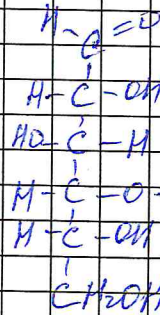 H-C=O
H-C-OH
HO-C-H
H-C-O-
H-C-OH
CH₂OH